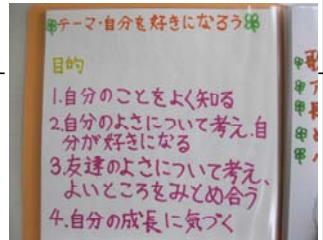 テーマ・自分を好きになろう
目的
1.自分のことをよく知る
2.自分のよさについて考え、自
分が好きになる
3.友達のよさについて考え、
よいところをみとめ合う
4.自分の成長に気づく